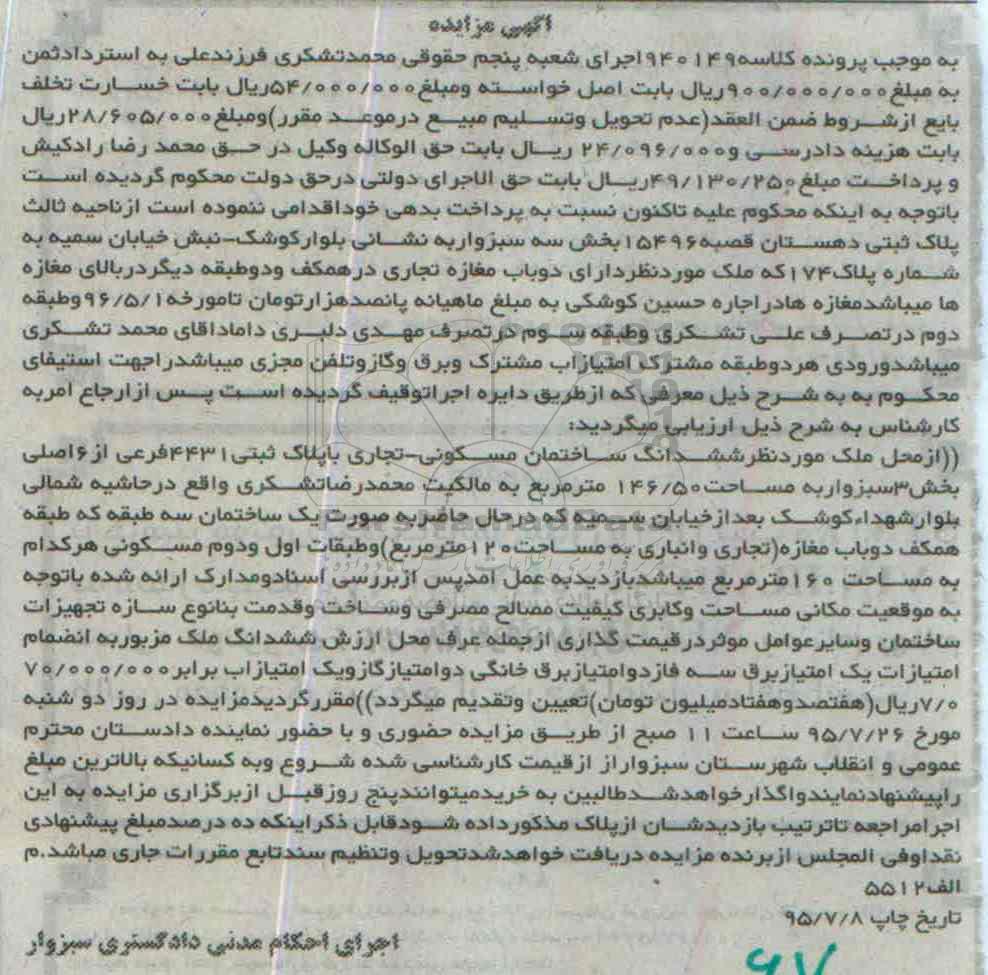 آگهی مزایده
به موجب پرونده کلاسه۹۴۰۱۴۹اجرای شعبه پنجم حقوقی محمدتشکری فرزندعلی به استردادثمن
به مبلغ۹۰۰/۰۰۰/۰۰۰ریال بابت اصل خواسته ومبلغ۵۴/۰۰۰/۰۰۰ریال بابت خسارت تخلف
بایع ازشروط ضمن العقد(عدم تحویل وتسلیم مبیع درموعد مقرر)ومبلغ۲۸/۶۰۵/۰۰۰ریال
بابت هزینه دادرسی و۲۴/۰۹۶/۰۰۰ ریال بابت حق الوکاله وکیل در حق محمد رضا رادکیش
و پرداخت مبلغ ۴۹/۱۳۰/۲۵۰ریال بابت حق الاجرای دولتی درحق دولت محکوم گردیده است
باتوجه به اینکه محکوم علیه تاکنون نسبت به پرداخت بدهی خوداقدامی ننموده است ازناحیه ثالث
پلاک ثبتی دهستان قصبه۱۵۴۹۶بخش سه سبزواربه نشانی بلوارکوشک-نبش خیابان سمیه به
شماره پلاک۱۷۴که ملک موردنظردارای دوباب مغازه تجاری درهمکف ودوطبقه دیگردربالای مغازه
ها میباشدمغازه هادراجاره حسین کوشکی به مبلغ ماهیانه پانصدهزارتومان تامورخه۹۶/۵/۱وطبقه
دوم درتصرف علی تشکری وطبقه سوم درتصرف مهدی دلبری داماداقای محمد تشکری
میباشدورودی هردوطبقه مشترک امتیازاب مشترک وبرق وگازوتلفن مجزی میباشدراجهت استیفای
محکوم به به شرح ذیل معرفی که ازطریق دایره اجراتوقیف گردیده است پس ازارجاع امربه
کارشناس به شرح ذیل ارزیابی میگردید:
((ازمحل ملک موردنظرششدانگ ساختمان مسکونی-تجاری باپلاک ثبتی۴۴۳۱فرعی از۶اصلی
بخش۳سبزواربه مساحت۱۴۶/۵۰ مترمربع به مالکیت محمدرضاتشکری واقع درحاشیه شمالی
بلوارشهداءکوشک بعدازخیابان سمیه که درحال حاضربه صورت یک ساختمان سه طبقه که طبقه
همکف دوباب مغازه(تجاری وانباری به مساحت۱۲۰مترمربع)وطبقات اول ودوم مسکونی هرکدام
به مساحت ۱۶۰مترمربع میباشدبازدیدبه عمل امدپس ازبررسی اسنادومدارک ارائه شده باتوجه
به موقعیت مکانی مساحت وکابری کیفیت مصالح مصرفی وساخت وقدمت بنانوع سازه تجهیزات
ساختمان وسایرعوامل موثردرقیمت گذاری ازجمله عرف محل ارزش ششدانگ ملک مزبوربه انضمام
امتیازات یک امتیازبرق سه فازدوامتیازبرق خانگی دوامتیازگازویک امتیازاب برابر۷۰/۰۰۰/۰۰۰
۷/۰ریال(هفتصدوهفتادمیلیون تومان)تعیین وتقدیم میگردد))مقررگردیدمزایده در روز دو شنبه
مورخ ۹۵/۷/۲۶ ساعت ۱۱ صبح از طریق مزایده حضوری و با حضور نماینده دادستان محترم
عمومی و انقلاب شهرستان سبزواراز ازقیمت کارشناسی شده شروع وبه کسانیکه بالاترین مبلغ
راپیشنهادنمایندواگذارخواهدشدطالبین به خریدمیتوانندپنج روزقبل ازبرگزاری مزایده به این
اجرامراجعه تاترتیب بازدیدشان ازپلاک مذکورداده شودقابل ذکراینکه ده درصدمبلغ پیشنهادی
نقداوفی المجلس ازبرنده مزایده دریافت خواهدشدتحویل وتنظیم سندتابع مقررات جاری مباشد.م
الف۵۵۱۲
تاریخ چاپ ۹۵/۷/۸
اجرای احکام مدنی دادگستری سبزوار
۶۷